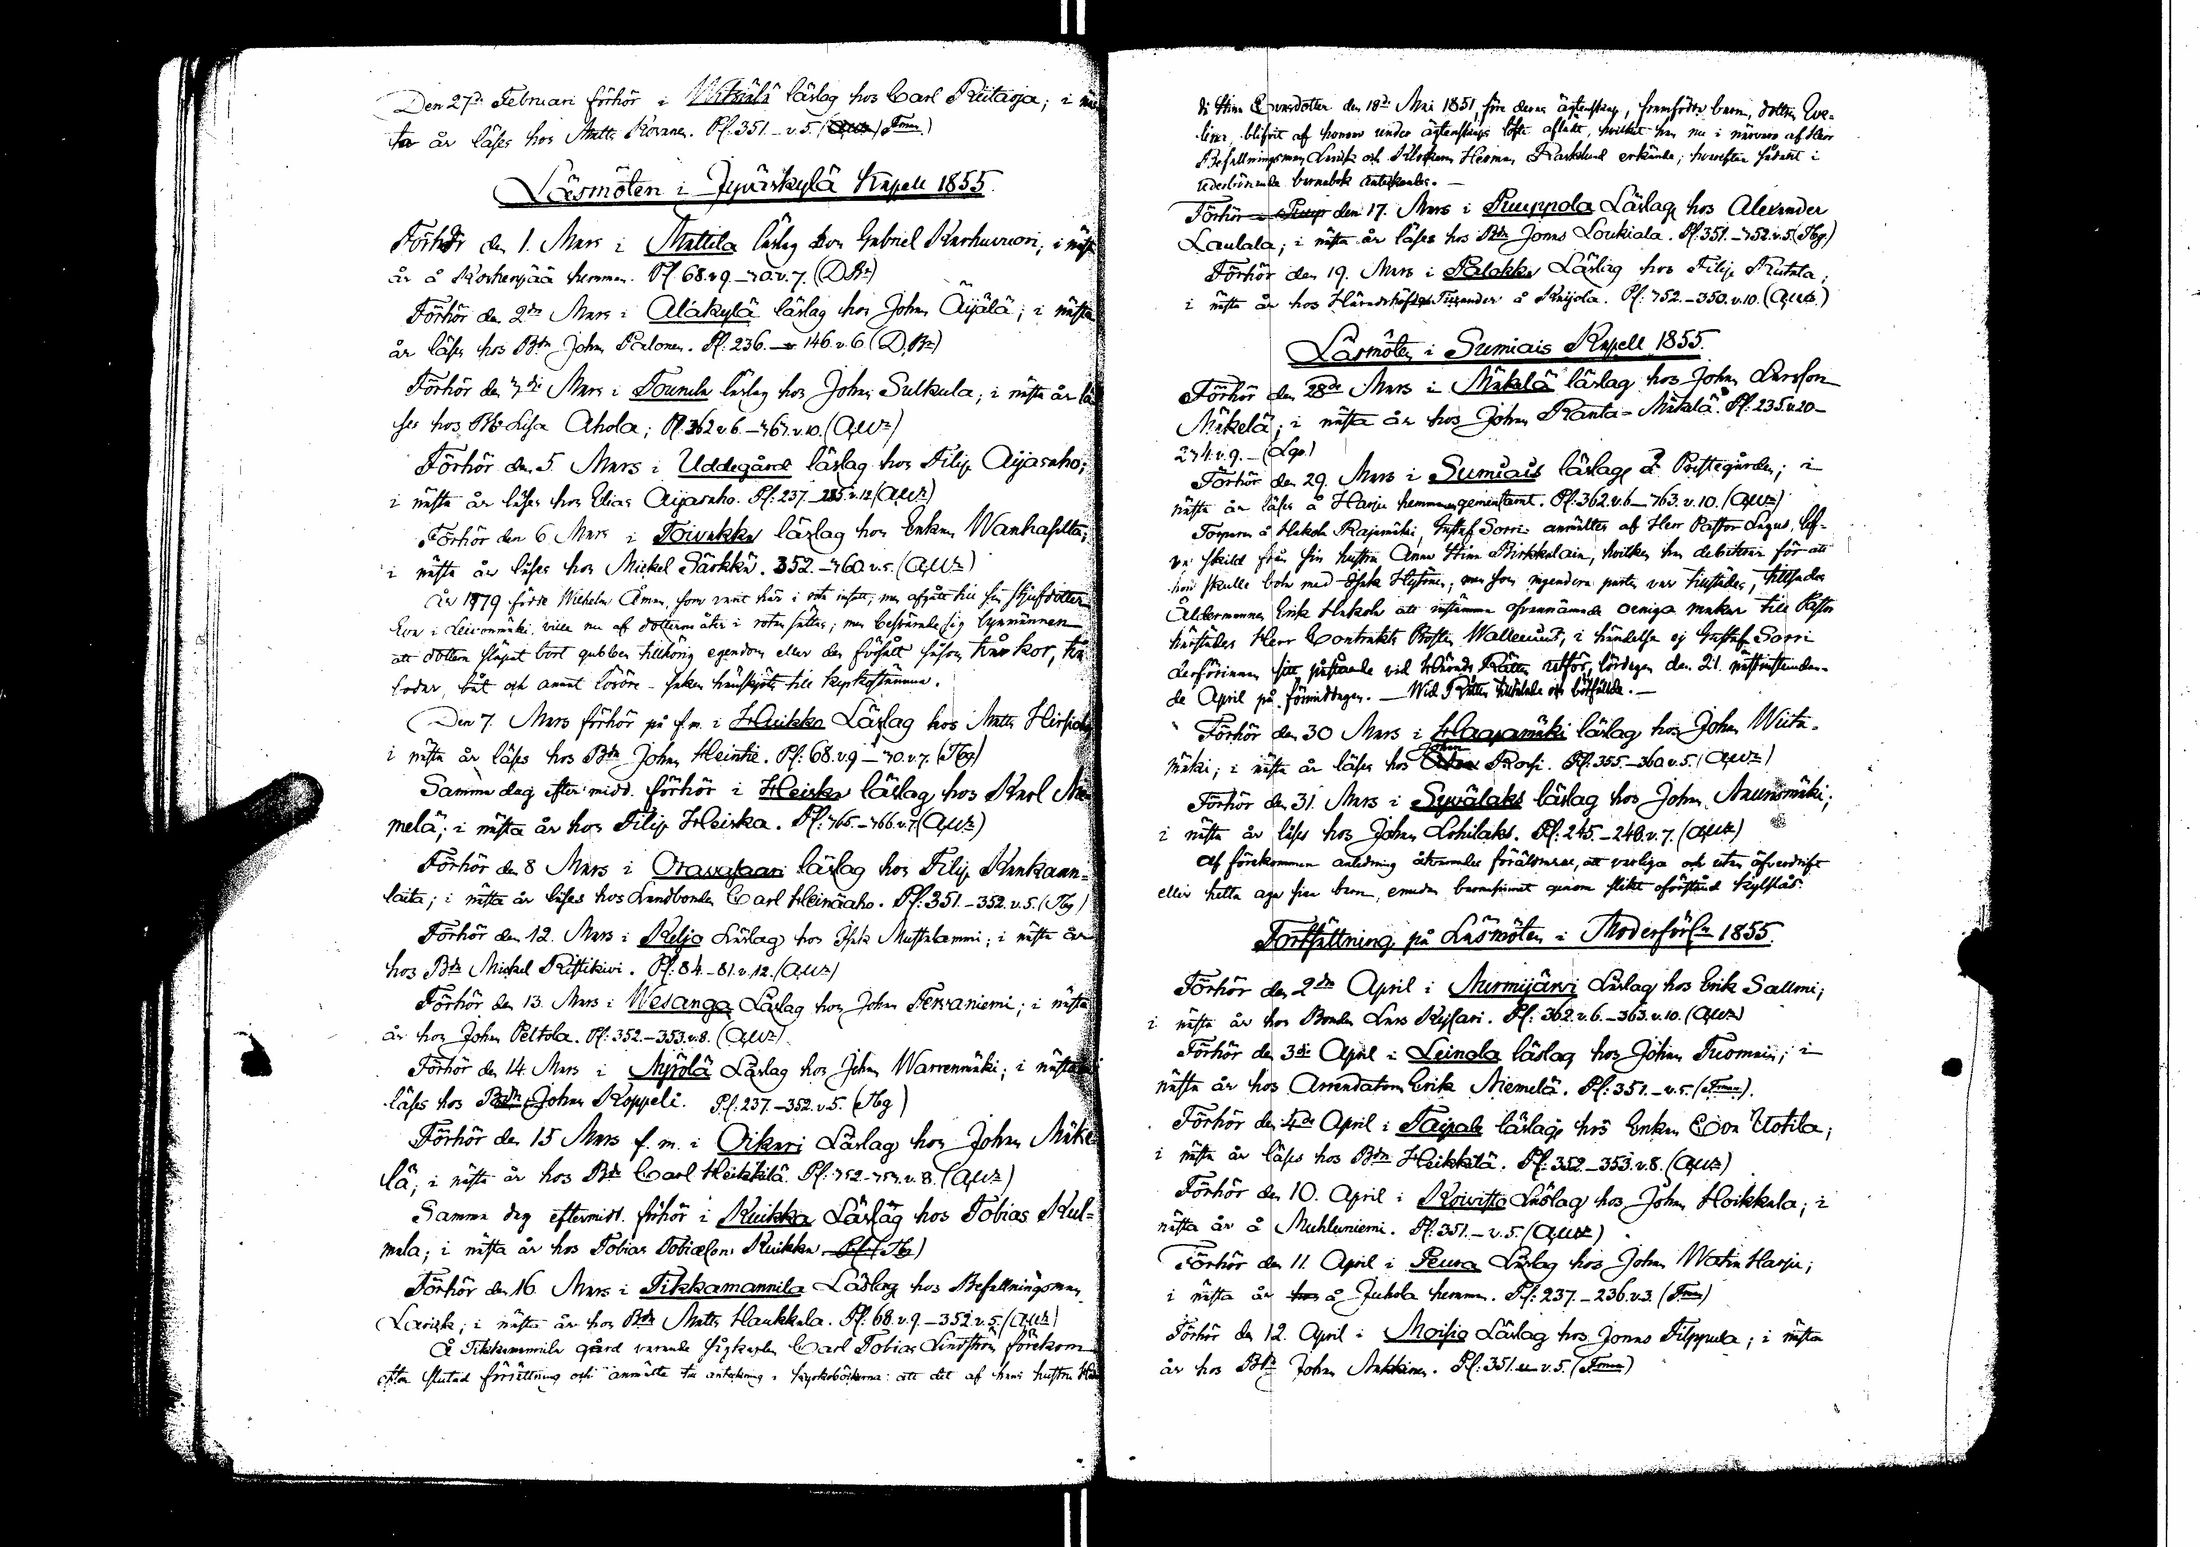 Den 27de Februari förhör i Witsiälä läslag hos Carl Riitaoja; i näs
ta år läses hos Matts Kovanen. Ps. 351.–v.5.
Läsmöten i Jyväskylä Kapell 1855.
Förhör den 1. Mars i Mattila läslag hos Gabriel Karhuvuori; i nästa
år å Koskenpää hemman. Ps. 68.v.9.–70.v.7. (D.Bn)
Förhör den 2dra Mars i Alakylä läslag hos Johan Äijälä; i nästa
år läses hos Bdn Johan Palonen. Ps. 236.–146.v.6 (D.Bn)
Förhör den 3die Mars i Tounila läslag hos Johan Sulkula; i nästa år lä
ses hos Lisa Ahola; Ps. 362 v.6.–363.v.10.
Förhör den 5. Mars i Uddegård läslag hos Filip Aijasaho;
i nästa år läses hos Elias Aijasaho. Ps. 237.
Förhör den 6. Mars i Toivakka läslag hos Enkan Wanhasilta;
i nästa år läses hos Mickel Särkkä. 352.–360.v.5.
Wilhelm Åman, som varit här i rote
Eva i Leivonmäki, ville nu af dottern åter i roten sättas; men sig
att dottern släpat bort gubben tillhörig egendom eller den försålt såsom tvär kor,
båt och annat lösöre
Den 7. Mars förhör på f.m. i Huikko Läslag hos Matts
i nästa år läses hos Bdn Johan Heintie. Ps. 68.v.9–70.v.7. (Tbg)
Samma dag efter midd. förhör i Heiska läslag hos Karl Nie
melä; i nästa år hos Filip Heiska. Ps. 365.–366.v.7.
Förhör den 8 Mars i Oravasaari läslag hos Filip Kankaan-
laita; i nästa år läses hos Landbonden Carl Heinäaho. Ps. 351.–352.v.5. (Tbg)
Förhör den 12. Mars i Keljo Läslag hos Isak Mustalammi; i nästa år
hos Bdn Mickel Ristikivi. Ps. 84.–81.v.12.
Förhör den 13. Mars i Wesanga Läslag hos Johan Tervaniemi; i nästa
år hos Johan Peltola. Ps. 352.–353.v.8.
Förhör den 14. Mars i Nyrölä Läslag hos Johan Warrenmäki; i nästa
läses hos Bdn Johan Koppeli. Ps. 237.–352.v.5. (Tbg)
Förhör den 15 Mars f.m. i Oikari Läslag hos Johan Mäke
lä; i nästa år hos Bdn Carl Heikkilä. Ps. 352–353.v.8.
Samma dag eftermidd. förhör i Kuikka Läslag hos Tobias Kul-
mala; i nästa år hos Tobias Tobiaeson Kuikka
Förhör den 16. Mars i Tikkamannila Läslag hos Befallningsman
i nästa år hos Bdn Matts Haukkala. Ps. 68.v.9.–352.v.5.
Å Tikkamannila gård varande Carl Tobias Lindström förekom
efter slutad förrättning och anmälte till anteckning i kyrkoböckerna: att det af hans hustru
den 18de Mai 1851, före deras äqtenskap, framfödda barn, dottren Eve-
lina, blifvit af honom under äqtenskaps löfte afladt, hvilket han nu i närvaro af Herr
Befallningsman och Klockaren Herman erkände; hvarefter sådant i
vederbörande barnabok antecknades.
Förhör den 17. Mars i Puuppola Läslag hos Alexander
Laulala; i nästa år läses hos Bdn Jonas Loukiala. Ps. 351.–352.v.5. (Tbg)
Förhör den 19. Mars i Palokka Läslag hos Filip
i nästa år hos Häradshöfding å Ps. 352.–350.v.10.
Läsmöten i Sumiais Kapell 1855.
Förhör den 28de Mars i Mäkelä läslag hos Johan Larsson
Mäkelä; i nästa år hos Johan Ranta-Mäkelä. Ps. 235.v.20–
274.v.9.– (Lgs)
Förhör den 29. Mars i Sumiais läslag å Prestegården; i
nästa år läses å Harju hemman gemensamt. Ps. 362.v.6.–363.v.10.
Torparen å Hakola Rajamäki, Gustaf Sorri anmältes af Herr Pastor Lagus, lef-
va skild från sin hustru Anna Stina Pirkkalain, hvilken han debiterar för att
hon skulle bola med Isak men som ingendera parten var tillstädes, tillsades
Åldermannen Erik Hakola att instämma ofvannämnde oeniga makar till Pastor
härstädes Herr Contrakts Prosten Wallenius, i händelse ej Gustaf Sorri
derförinnan sitt påstående vid Härads Rätten utfört, lördagen den 21. nästinstunden-
de April på förmiddagen.
Förhör den 30 Mars i Haapamäki läslag hos Johan Wiita-
mäki; i nästa år läses hos Johan Rossi. Ps. 355.–360.v.5.
Förhör den 31. Mars i Sywälaks läslag hos Johan Naurismäki;
i nästa år läses hos Johan Lohilaks. Ps. 245.–240.v.7.
Af förekommen anledning åtvarnades föräldrarne, att varliga och utan öfverdrift
eller hetta aga sina barn, emedan barnasinnet genom slikt oförstånd
Fortsättning på Läsmöten i Moderförsn 1855.
Förhör den 2dra April i Nurmijärvi Läslag hos Erik Sallmi;
i nästa år hos Bonden Lars Ps. 362.v.6.–363.v.10.
Förhör den 3die April i Leinola läslag hos Johan Tuomain; i
nästa år hos Arrendatorn Erik Niemelä. Ps. 351.–v.5.
Förhör den 4de April i Taipale läslag hos Enkan Eva Uotila;
i nästa år läses hos Bdn Heikkilä. Ps. 352.–353.v.8.
Förhör den 10. April i Koivisto Läslag hos Johan Hoikkala; i
nästa år å Muhluniemi. Ps. 351.–v.5.
Förhör den 11. April i Peura Läslag hos Johan Watia Harju;
i nästa år å Juhola hemman. Ps. 237.–236.v.3.
Förhör den 12. April i Moisio Läslag hos Jonas Filppula; i nästa
år hos Bdn Johan Ps. 351. v.5.